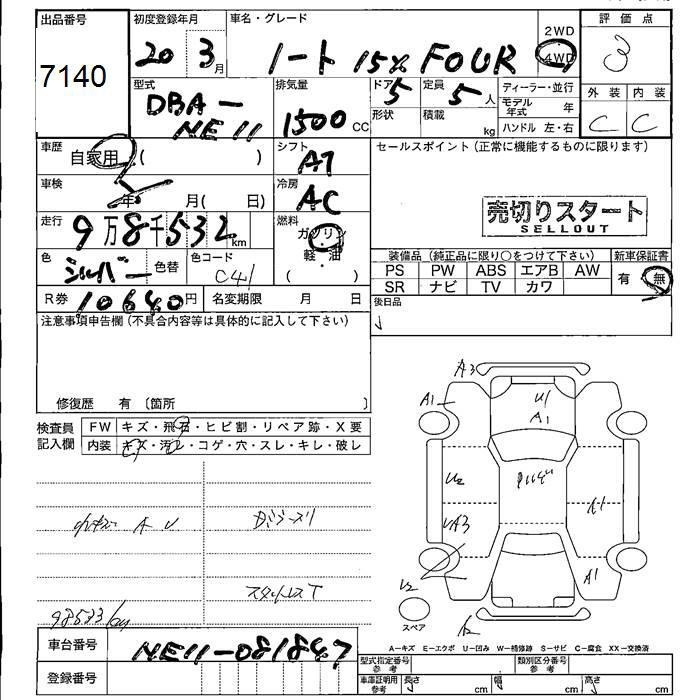 出品番号
7140
初度登録年月
20 3月
車名・グレード
ノート 15X FOUR
2WD
4WD
評価点
3
外装 内装
C C
型式
DBA-
NE11
排気量
1500 CC
ドア 5
形状
定員 5人
積載 kg
ディーラー・並行
モデル年式 年
ハンドル 左・右
車歴
自家用 ( )
シフト
AT
セールスポイント(正常に機能するものに限ります)
車検
年 月( 日)
冷房
AC
売切りスタート
SELLOUT
走行
9万8千532km
燃料
ガソリン
軽・油
色
シルバー
色替
色コード
装備品(純正品に限り○をつけて下さい)
新車保証書
PS PW ABS エアB AW
SR ナビ TV カワ
有 無
R券 10640円
名変期限 月 日
後日品
注意事項申告欄(不具合内容等は具体的に記入して下さい)
修復歴 有 〔箇所 〕
検査員記入欄
FW キズ・飛石・ヒビ割・リペア跡・X要
内装 キズ・汚レ・コゲ・穴・スレ・キレ・破レ
A3
A1
U1
A1
U2
UA3
A1
U2
A U
スタッドレスT
スペア
車台番号
NE11-081847
登録番号
A-キズ E-エクボ U-凹み W-補修跡 S-サビ C-腐食 XX-交換済
型式指定番号 参考
類別区分番号 参考
車庫証明用 参考
長さ cm 幅 cm 高さ cm